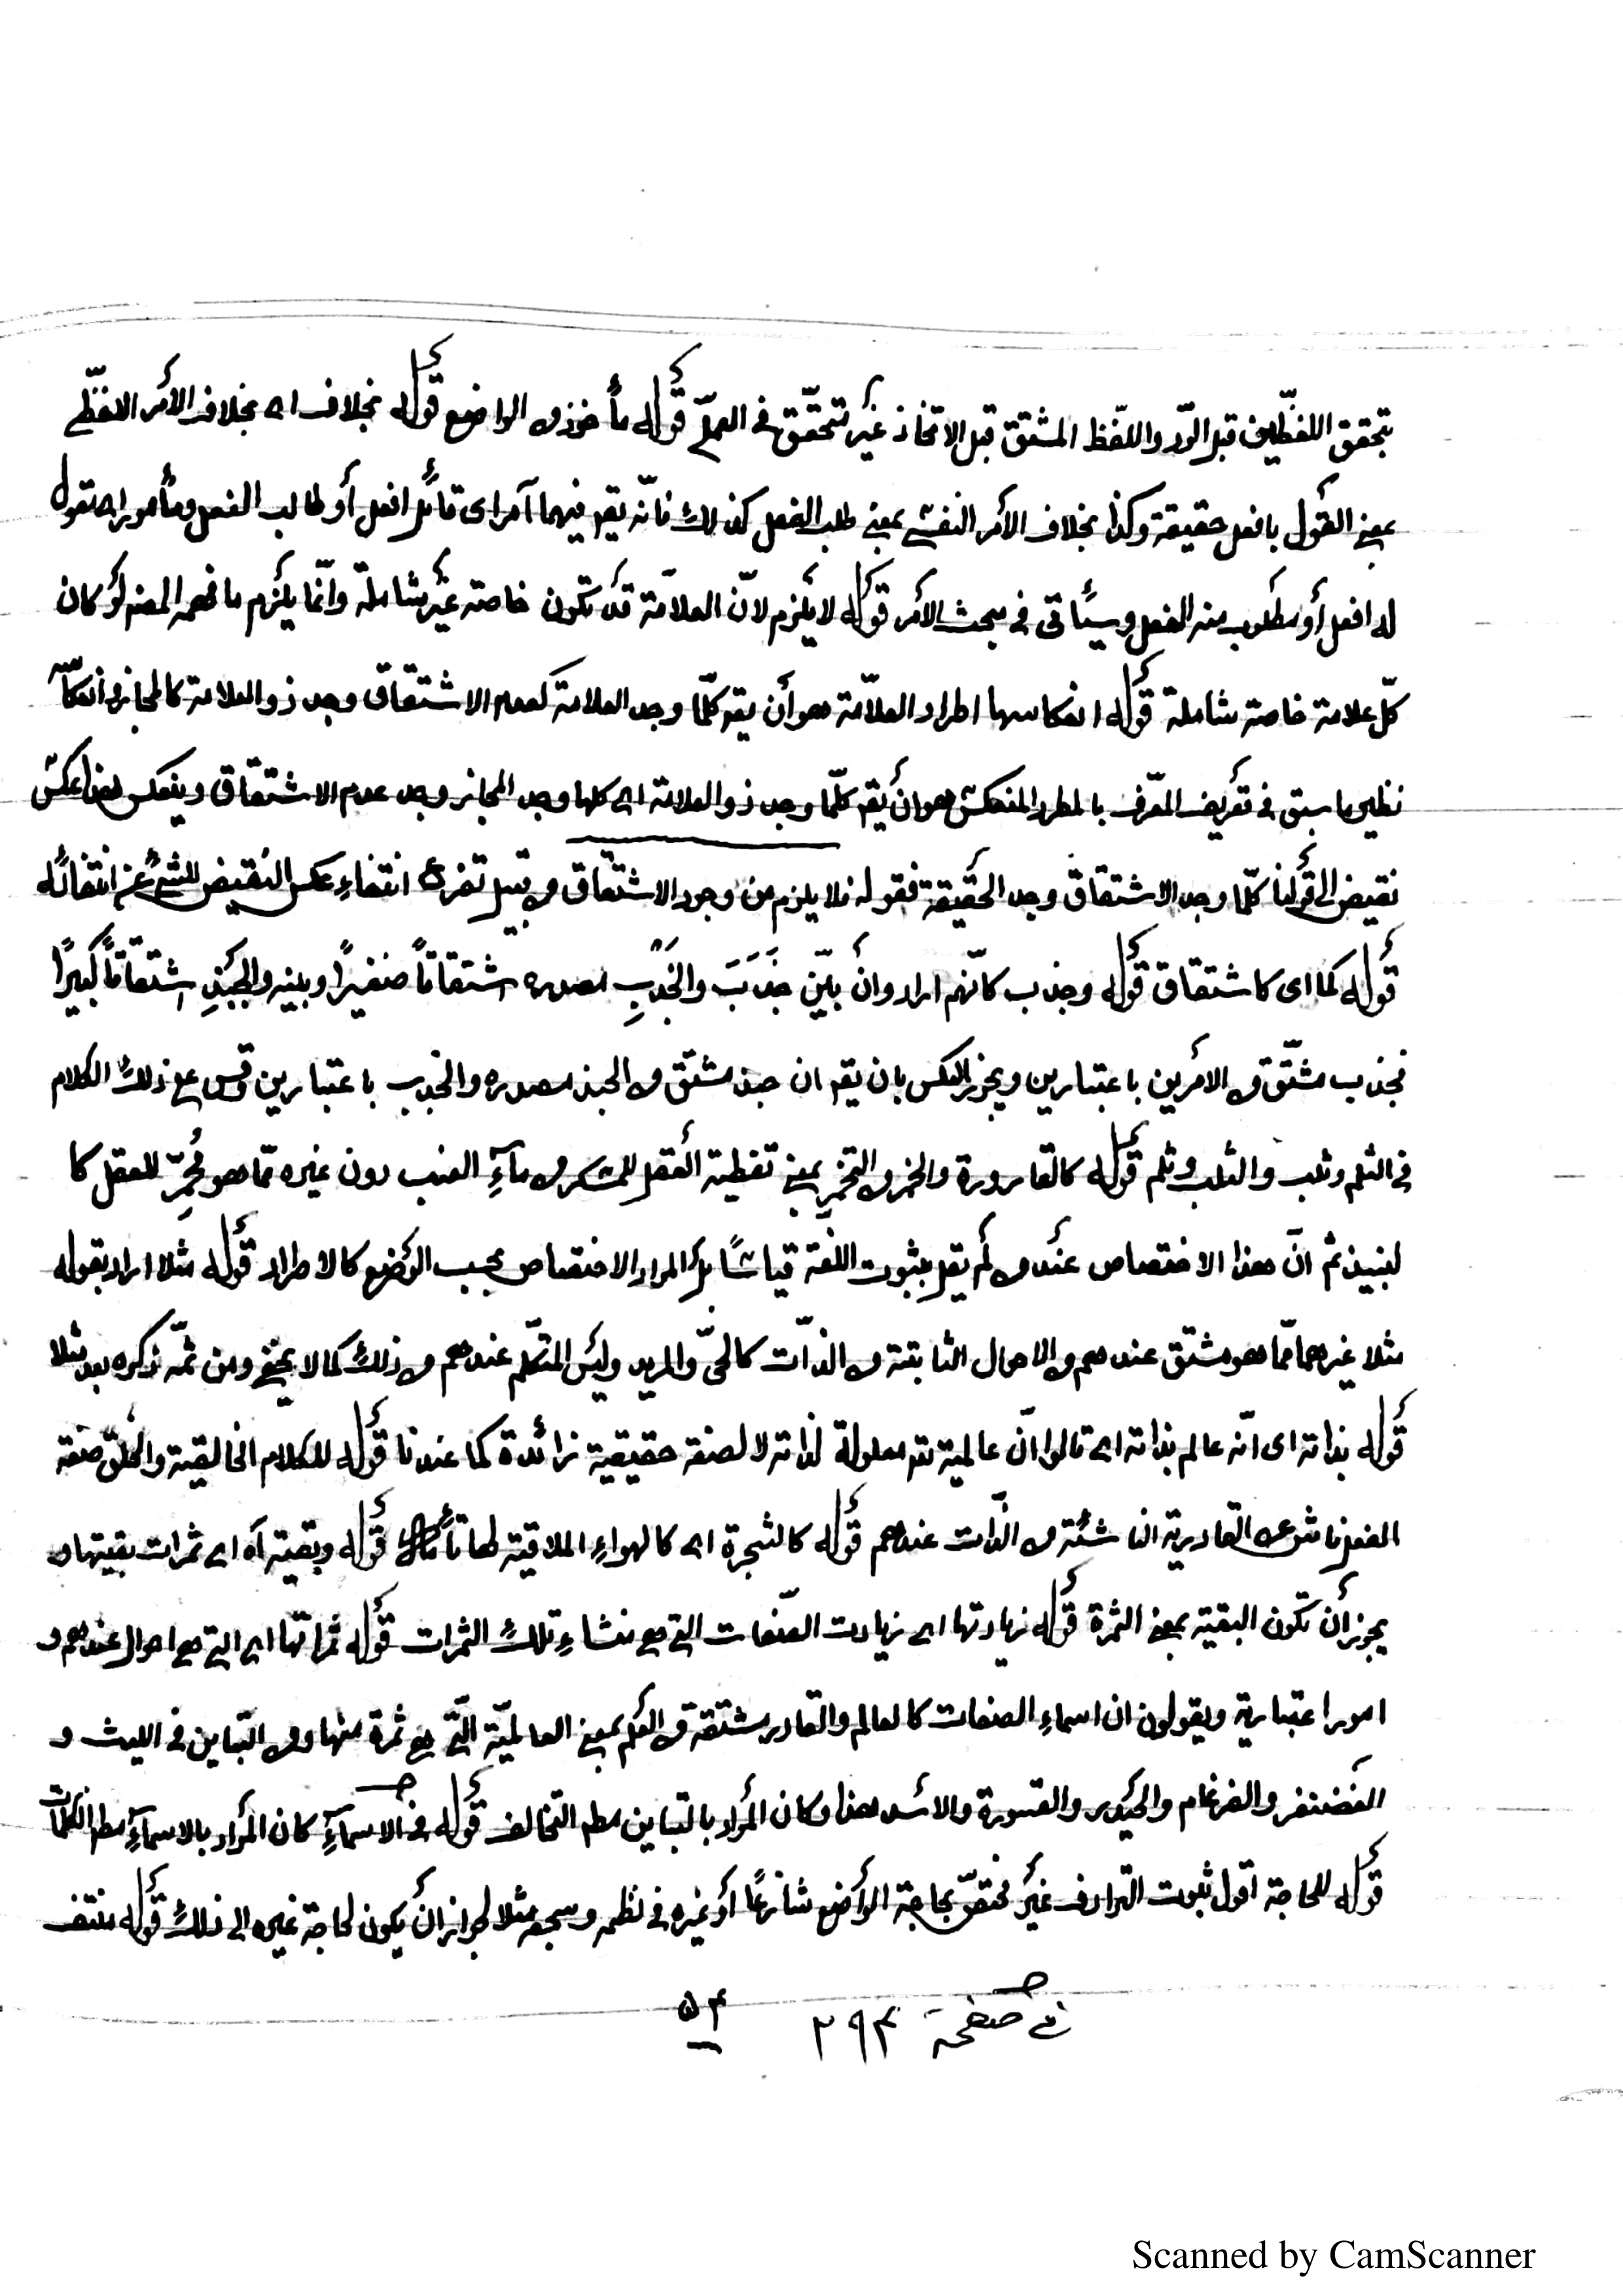 بتحقق اللفظين قبل الرد واللفظ المشتق قبل الاتخاذ غير متحقق في العملي قوله مأخوذ من الواضع قوله بخلاف اى بخلاف الأمر اللفظي
بمعنى القول بافعل حقيقة وكذا بخلاف الأمر النفسي بمعنى طلب الفعل كذلك فانّه يقم فيهما آمر اى قائل افعل أو طالب الفعل ومأمور اى مقول
له افعل أو مطلوب منه الفعل وسيأتى في مبحث الأمر قوله لا يلزم لانّ العلامة قد تكون خاصة غير شاملة وانّما يلزم ما فهمه المصنـ لو كان
كلّ علامة خاصة شاملة قوله انعكاسها اطراد العلامة هو أن يقم كلّما وجد العلامة كعدم الاشتقاق وجد ذو العلامة كالمجاز وانعكا
نظير ما سبق في تعريف المعرّف بالمطرد المنعكس هو ان يقم كلّما وجد ذو العلامة اى كلما وجد المجاز وجد عدم الاشتقاق وينعكس هذا عكس
نقيض الى قولنا كلّما وجد الاشتقاق وجد الحقيقة فقوله فلا يلزم من وجود الاشتقاق من قبيل تفرع انتفاء عكس النقيض للشئ عن انتفائه
قوله كما اى كاشتقاق قوله وجذب كانّهم ارادوا انّ بين جَذَبَ والجَذْبِ مصدره اشتقاقاً صغيراً وبينه والجبذِ اشتقاقاً كبيراً
فجذب مشتقّ من الأمرين باعتبارين ويجوز العكس بان يقم ان جبذ مشتق من الجبذ مصدره والجذب باعتبارين وقس على ذلك الكلام
في الثلم وثلب والثلب وثلم قوله كالقارورة والخمر من التخمير بمعنى تغطية العقل للمسكر من ماءِ العنب دون غيره ممّا هو مُخمِّر للعقل كا
لنبيذ ثم انّ هذا الاختصاص عند من لم يقل بثبوت اللغة قياساً بل المراد الاختصاص بحسب الوضع كالاطراد قوله مثلا اراد بقوله
مثلا غيرهما ممّا هو مشتق عندهم من الاحوال الثابتة من الذات كالحىّ والمريد وليس المتكلّم عندهم من ذلك كما لا يخفى ومن ثمّه ذكره بعد مثلا
قوله بذاته اى انّه عالم بذاته اى قالوا انّ عالمية تم معلولة لذاته لا لصفة حقيقية زائدة كما عندنا قوله للكلام الخالقية والخلق صفة
الفعل ناش عن القادرية الناشئة من الذّات عندهم قوله كالشجرة اى كالهواءِ الملاقية لها تأمل قوله وبقية آه اى ثمرات بقيتها و
يجوز أن تكون البقية بمعنى الثمرة قوله زيادتها اى زيادت الصّفات التي هي منشاءِ تلك الثمرات قوله ثمراتها اى التي هي احوال عندهم و
امور اعتبارية ويقولون ان اسماءِ الصفات كالعالم والقادر مشتقة من العلم بمعنى العالميّة التّي هي ثمرة منها ومن التباين في الليث و
الغضنفر والضرغام والحيدر والقسورة والاسد هذا وكان المراد بالتباين مطم التخالف قوله في الاسماءِ كان المراد بالاسماءِ مطم الكلمات
قوله للحاجة اقول ثبوت الترادف غير مختصّ بحاجة الواضع شارعاً أو غيره في نظمه وسجعه مثلا لجواز ان يكون لحاجة غيره الى ذلك قوله منتف
في صفحة ٢٩٣ ٥٣
Scanned by CamScanner